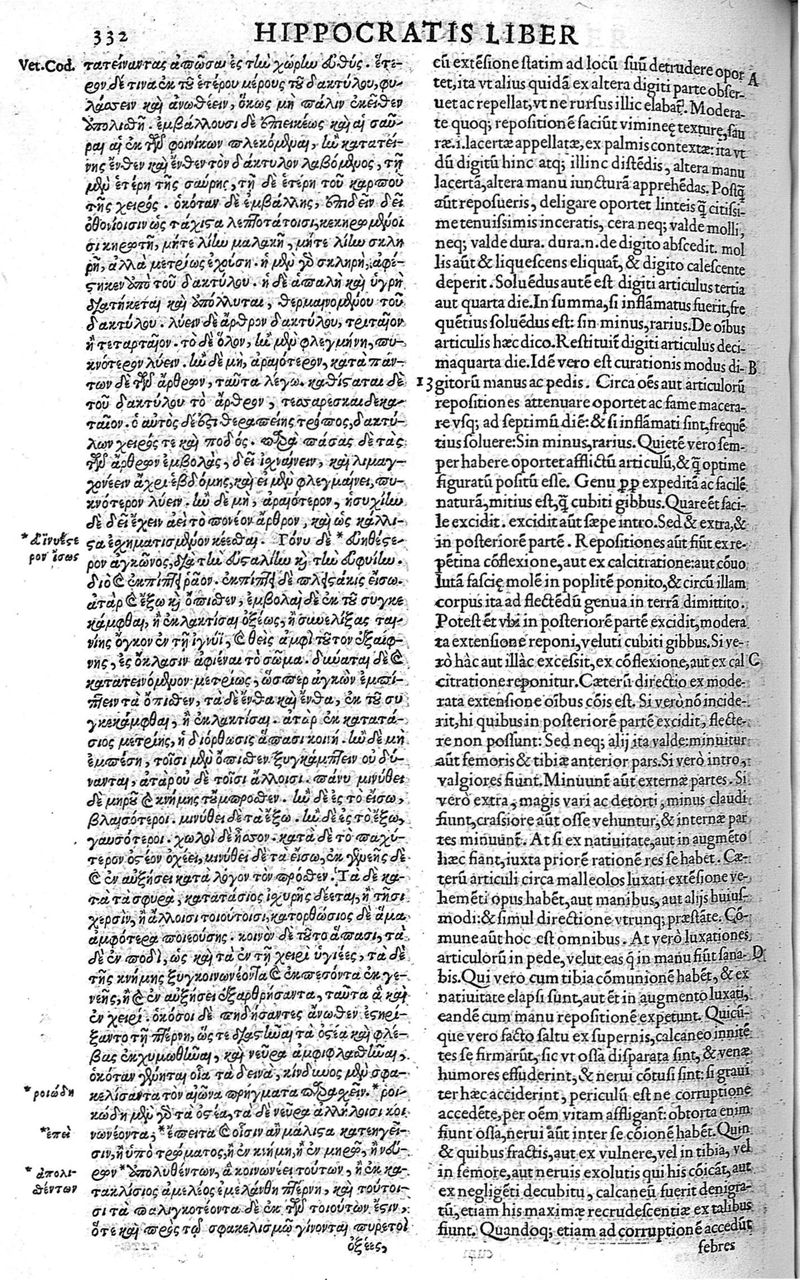 332 HIPPOCRATIS LIBER
Vet. Cod.
τατείναντας ἀπῶσαι ἐς τὴν χώρην εὐθύς. ἕτε-
ρον δὲ τινα ἐκ τοῦ ἑτέρου μέρους τοῦ δακτύλου, φυ-
λάσσειν καὶ ἀνωθέειν, ὅκως μὴ πάλιν ἐκεῖθεν
ὑπολισθῇ. ἐμβάλλουσι δὲ ἐπιεικέως καὶ αἱ σαῦ-
ραι αἱ ἐκ τῶν φοινίκων πλεκόμεναι, ἢν κατατεί-
νης ἔνθεν καὶ ἔνθεν τὸν δάκτυλον λαβόμενος, τῇ
μὲν ἑτέρη τῆς σαύρης, τῇ δὲ ἑτέρη τοῦ καρποῦ
τῆς χειρός. ὁκόταν δὲ ἐμβάλλης, ἐπιδεῖν δεῖ
ὀθονίοισιν ὡς τάχιστα λεπτοτάτοισι, κεκηρωμένοι
σι κηρωτῇ, μήτε λίην μαλακῇ, μήτε λίην σκλη
ρῇ, ἀλλὰ μετρίως ἐχούση. ἡ μὲν γὰρ σκληρὴ, ἀφέ-
στηκεν ὑπὸ τοῦ δακτύλου. ἡ δὲ ἁπαλὴ καὶ ὑγρὴ
διατήκεται καὶ ἀπόλλυται, θερμαινομένου τοῦ
δακτύλου. λύειν δὲ ἄρθρον δακτύλου, τριταῖον
ἢ τεταρταῖον. τὸ δὲ ὅλον, ἢν μὲν φλεγμήνη, πυ-
κνότερον λύειν. ἢν δὲ μὴ, ἀραιότερον, κατὰ πάν-
των δὲ τῶν ἄρθρων, ταῦτα λέγω. καθίσταται δὲ
τοῦ δακτύλου τὸ ἄρθρον, τεσσαρεσκαιδεκα-
ταῖον. ὁ αὐτὸς δέ ἐστι θεραπείης τρόπος, δακτύ-
λων χειρός τε καὶ ποδός. παρὰ πάσας δὲ τὰς
τῶν ἄρθρων ἐμβολὰς, δεῖ ἰσχναίνειν, καὶ λιμαγ-
χονέειν ἄχρι ἑβδόμης, καὶ εἰ μὲν φλεγμαίνει, πυ-
κνότερον λύειν. ἢν δὲ μὴ, ἀραιότερον, ἡσυχίην
δὲ δεῖ ἔχειν ἀεὶ τὸ πονέον ἄρθρον, καὶ ὡς κάλλι-
στα ἐσχηματισμένον κέεσθαι. Γόνυ δὲ * εὐηθέστε-
ρον ἀγκῶνος, διὰ τὴν εὐσταλίην κὴ τὴν εὐφυίην.
διὸ καὶ ἐκπίπτει ῥᾷον. ἐκπίπτει δὲ πλειστάκις εἴσω.
ἀτὰρ καὶ ἔξω κὴ ὄπισθεν, ἐμβολαὶ δὲ ἐκ τοῦ συγκε
κάμφθαι, ἢ ἐκλακτίσαι ὀξέως, ἢ συνελίξας ται-
νίης ὄγκον ἐν τῇ ἰγνύϊ, καὶ θεὶς ἀμφὶ τοῦτον ἐξαίφ-
νης, ἐς ὄκλασιν ἀφιέναι τὸ σῶμα. δύναται δὲ καὶ
κατατεινόμενον μετρίως, ὥσπερ ἀγκὼν ἐμπίπ-
τειν τὰ ὄπισθεν, τὰ δὲ ἔνθα καὶ ἔνθα, ἐκ τοῦ συ
γκεκάμφθαι, ἢ ἐκλακτίσαι. ἀτὰρ ἐκ κατατά-
σιος μετρίης, ἡ διόρθωσις ἅπασι κοινή. ἢν δὲ μὴ
ἐμπέση, τοῖσι μὲν ὄπισθεν ξυγκάμπτειν οὐ δύ-
νανται, ἀτὰρ οὐδὲ τοῖσι ἄλλοισι. πάνυ μινύθει
δὲ μηροῦ καὶ κνήμης τοὔμπροσθεν. ἢν δὲ ἐς τὸ εἴσω,
βλαισότεροι. μινύθει δὲ τὰ ἔξω. ἢν δὲ ἐς τὸ ἔξω,
γαυσότεροι. χωλοὶ δὲ ἧσσον. κατὰ δὲ τὸ παχύ-
τερον ὀστέον ὀχέει, μινύθει δὲ τὰ εἴσω, ἐκ γενεῆς δὲ
καὶ ἐν αὐξήσει κατὰ λόγον τὸν πρόσθεν. Τὰ δὲ κα-
τὰ τὰ σφυρὰ, κατατάσιος ἰσχυρῆς δέεται, ἢ τῇσι
χερσὶν, ἢ ἄλλοισι τοιούτοισι, κατορθώσιος δὲ ἅμα
ἀμφότερα ποιεούσης. κοινὸν δὲ τοῦτο ἅπασι, τὰ
δὲ ἐν ποδὶ, ὡς καὶ τὰ ἐν τῇ χειρὶ ὑγιέες, τὰ δὲ
τῆς κνήμης ξυγκοινωνέοντα καὶ ἐκπεσόντα ἐκ γε-
νεῆς, ἢ καὶ ἐν αὐξήσει ἐξαρθρήσαντα, ταῦτα ἃ καὶ
ἐν χειρί. ὁκόσοι δὲ πηδήσαντες ἄνωθεν ἐστηρί-
ξαντο τῇ πτέρνη, ὥστε διαστῆναι τὰ ὀστέα καὶ φλέ-
βας ἐκχυμωθῆναι, καὶ νεῦρα ἀμφιφλασθῆναι,
ὁκόταν γένηται οἷα τὰ δεινὰ, κίνδυνος μὲν σφα-
κελίσαντα τὸν αἰῶνα πρήγματα παρασχεῖν. * ῥοι-
κώδη μὲν γὰρ τὰ ὀστέα, τὰ δὲ νεῦρα ἀλλήλοισι κοι
νωνέοντα, * ἔπειτα καὶ οἷσιν ἂν μάλιστα κατεηγεῖ-
σιν, ἢ ὑπὸ τρώματος, ἢ ἐν κνήμη, ἢ ἐν μηρῷ, ἢ νεύ-
ρων * ὑπολυθέντων, ἃ κοινωνέει τούτων, ἢ ἐκ κα-
τακλίσιος ἀμελέος ἐμελάνθη πτέρνη, καὶ τούτοι-
σι τὰ παλιγκοτέοντα δὲ ἐκ τῶν τοιούτων ἐστίν,
ὅτε καὶ πρὸς τῷ σφακελισμῷ γίνονται πυρετοὶ
ὀξέες,
* εὐινυέστε
ρον ἴσως
* ῥοιώδη
* ἐπεὶ
* ἀπολυ
θέντων
cū extēsione statim ad locū suū detrudere opor A
tet, ita vt alius quidā ex altera digiti parte obser-
uet ac repellat, vt ne rursus illic elabat̃. Modera-
te quoq; repositionē faciūt vimineę texturę, sau
ræ .i. lacertæ appellatæ, ex palmis contextæ: ita vt
dū digitū hinc atq; illinc distēdis, altera manu
lacertā, altera manu iuncturā apprehēdas. Postq̄
aūt reposueris, deligare oportet linteis q̄ citissi-
me tenuissimis inceratis, cera neq; valde molli,
neq; valde dura. dura .n. de digito abscedit. mol
lis aūt & liquescens eliquat̃, & digito calescente
deperit. Soluēdus autē est digiti articulus tertia
aut quarta die. In summa, si inflāmatus fuerit, fre
quētius soluēdus est: sin minus, rarius. De oībus
articulis hæc dico. Restituit̃ digiti articulus deci-
maquarta die. Idē vero est curationis modus di- B
13 gitorū manus ac pedis. Circa oēs aut articulorū
repositiones attenuare oportet ac fame macera-
re vsq; ad septimū diē: & si inflāmati sint, frequē
tius soluere: Sin minus, rarius. Quietē vero sem-
per habere oportet afflictū articulū, & q̄ optime
figuratū positū esse. Genu ꝓpp expeditā ac facilē
naturā, mitius est, q̄ cubiti gibbus. Quare & faci-
le excidit. excidit aūt sæpe intro. Sed & extra, &
in posteriorē partē. Repositiones aūt fiūt ex re-
pētina cōflexione, aut ex calcitratione: aut cōuo
lutā fascię molē in poplitē ponito, & circū illam
corpus ita ad flectēdū genua in terrā dimittito.
Potest ēt vbi in posteriorē partē excidit, modera
ta extensione reponi, veluti cubiti gibbus. Si ve-
rò hàc aut illàc excessit, ex cōflexione, aut ex cal C
citratione reponitur. Cæterū directio ex mode-
rata extensione oībus cōis est. Si verò nō incide-
rit, hi quibus in posteriorē partē excidit, flecte-
re non possunt: Sed neq; alij ita valde: minuitur
aūt femoris & tibiæ anterior pars. Si verò intro,
valgiores fiunt. Minuunt aūt externæ partes. Si
verò extra, magis vari ac detorti, minus claudi
fiunt, crassiore aūt osse vehuntur, & internæ par
tes minuunt̃. At si ex natiuitate, aut in augmēto
hæc fiant, iuxta priorē rationē res se habēt. Cæ-
terū articuli circa malleolos luxati extēsione ve-
hemēti opus habēt, aut manibus, aut alijs huius-
modi: & simul directione vtrunq; præstāte. Cō-
mune aūt hoc est omnibus. At verò luxationes
articulorū in pede, velut eas q̄ in manu fiūt sana- D
bis. Qui vero cum tibia cōmunionē habēt, & ex
natiuitate elapsi sunt, aut ēt in augmento luxati,
eandē cum manu repositionē expetunt. Quicū-
que vero facto saltu ex supernis, calcaneo innitē
tes se firmarūt, sic vt ossa disparata sint, & venæ
humores effuderint, & nerui cōtusi sint: si graui
ter hæc acciderint, periculū est ne corruptione
accedēte, per oēm vitam affligant: obtorta enim
fiunt ossa, nerui aūt inter se cōionē habēt. Quin
& quibus fractis, aut ex vulnere, vel in tibia, vel
in femore, aut neruis exolutis qui his cōicāt, aut
ex negligēti decubitu, calcaneū fuerit denigra-
tū, etiam his maximæ recrudescentiæ ex talibus
fiunt. Quandoq; etiam ad corruptionē accedūt
febres